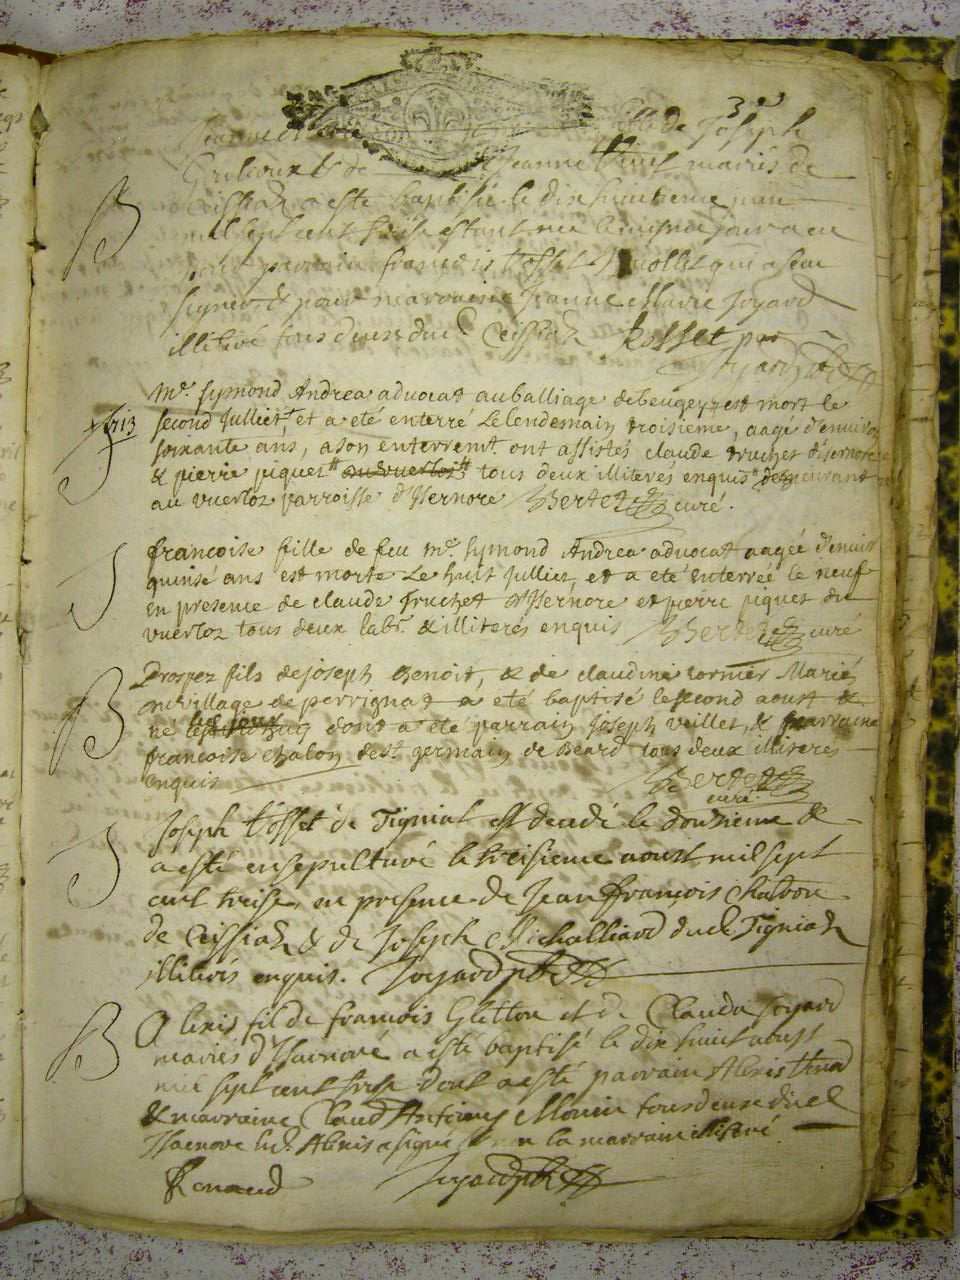 3e
Jeanne fille de Joseph
& de Jeanne mariés de
B Ceissiaz a esté baptisé le dix huitieme juin
mil sept cent treise estant née le mesme jour a eu
pour parrain francois tosset qui a sceu
signer & pour marraine Jeanne Marie Joyard
illiteré tous deux dud Ceissiaz Rosset par
Joyard ptre
1713
Me. Symond Andrea advocat au balliage de beugey est mort le
second Julliet, et a eté enterré Le lendemain troisieme, aagé d'environ
soixante ans, a son enterremt. ont assistés claude truchet d'isernore
& pierre piquet au vuerloz tous deux illiterés enquis demeurant
au vuerloz parroisse d'Isernore Bertet curé.
J francoise fille de feu Me. Symond Andrea advocat aagée d'enuir
quinsé ans est morte Le huit Julliet, et a eté enterréé le neuf
en presence de claude truchet d'Isernore et pierre piquet du
vuerloz tous deux labr. & illiterés enquis Bertet curé
B Prosper fils de joseph Benoit, & de claudine tornier Mariés
au village de perrignat a eté baptisé le second aoust &
né le dont a eté parrain Joseph veillet, & marraine
francoise chalon de st. germain de Beard tous deux illiterés
enquis Bertet
curé
J Joseph tosset de Tigniat est decedé le douzieme &
a esté ensepulturé le treisieme aoust mil sept
cent treise, en presence de Jean francois Chalbon
de Ceissiaz & de Joseph Michalliard dud Tigniaz
illiterés enquis. Joyard ptre
B Alexis fil de francois Gletton et de Clauda Joyard
mariés d'Isernore a esté baptisé le dix huit aoust
mil sept cent treise dont a esté parrain Alexis Renod
& marraine Claud Antoine Monin tous deux dud
Isernore led. Alexis a signé non la marraine illiteré
Renaud Joyard ptre